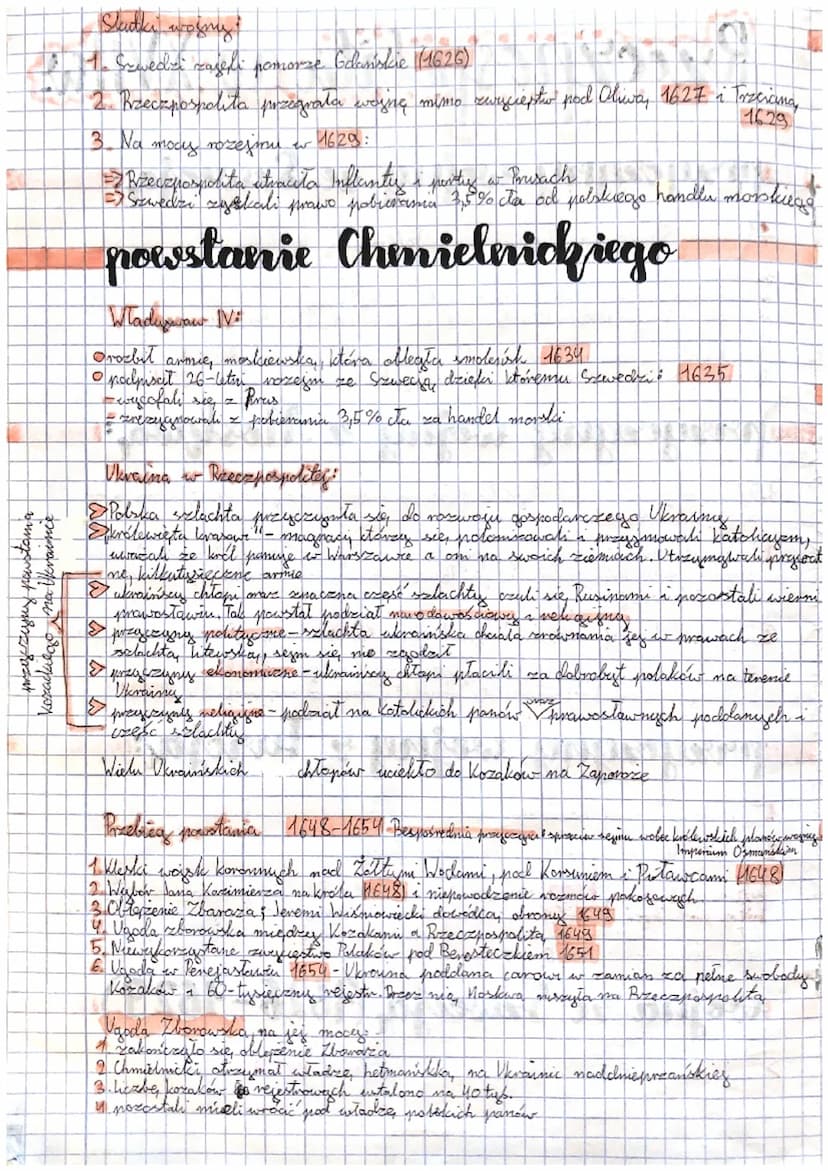 Skutki wojny:
1. Szwedzi zajęli pomorze Gdańskie (1626)
2. Rzeczpospolita przegrała wojnę mimo zwycięstw pod Oliwą, 1627 i Trzcianą,
1629
3. Na mocy rozejmu w 1629:
=> Rzeczpospolita utraciła Inflanty i porty w Prusach
=> Szwedzi zyskali prawo pobierania 3,5% cła od polskiego handlu morskiego
powstanie Chmielnickiego
Władysław IV:
rozbił armię moskiewską, która obległa smoleńsk 1634
podpisał 26-letni rozejm ze Szwecją, dzięki któremu Szwedzi: 1635
- wycofali się z Prus
- zrezygnowali z pobierania 3,5% cła za handel morski
Ukraina w Rzeczpospolitej:
Polska szlachta przyczyniła się do rozwoju gospodarczego Ukrainy
"królewięta kresowe" - magnaci, którzy się polonizowali i przyjmowali katolicyzm,
uważali że król panuje w Warszawie a oni na swoich ziemiach. Utrzymywali prywat
ne, kilkutysięczne armie
ukraińscy chłopi oraz znaczna część szlachty czuli się Rusinami i pozostali wierni
prawosławiu. Tak powstał podział narodowościowy i religijny
przyczyny polityczne - szlachta ukraińska chciała zrównania jej w prawach ze
szlachtą litewską, sejm się nie zgodził
przyczyny ekonomiczne - ukraińscy chłopi płacili za dobrobyt polaków na terenie
Ukrainy
przyczyny religijne - podział na katolickich panów oraz prawosławnych poddanych i
część szlachty
przyczyny powstania
kozackiego na Ukrainie
Wielu Ukraińskich chłopów uciekło do Kozaków na Zaporoże
Przebieg powstania 1648-1654 Bezpośrednia przyczyna: sprzeciw sejmu wobec królewskich planów wojny z
Imperium Osmańskim
1. Klęski wojsk koronnych nad Żółtymi Wodami, pod Korsuniem i Piławcami (1648)
2. Wybór Jana Kazimierza na króla (1648) i niepowodzenie rozmów pokojowych
3. Oblężenie Zbaraża; Jeremi Wiśniowiecki dowódcą obrony 1649
4. Ugoda zborowska między Kozakami a Rzeczpospolitą 1649
5. Niewykorzystane zwycięstwo Polaków pod Beresteczkiem 1651
6. Ugoda w Perejasławiu 1654 - Ukraina poddana carowi w zamian za pełne swobody
Kozaków i 60-tysięczny rejestr. Przez nią, Moskwa ruszyła na Rzeczpospolitą
Ugoda Zborowska, na jej mocy:
1. zakończyło się oblężenie Zbaraża
2 Chmielnicki otrzymał władzę hetmańską na Ukrainie naddnieprzańskiej
3. liczbę kozaków rejestrowych ustalono na 40 tyś.
4 pozostali mieli wrócić pod władzę polskich panów